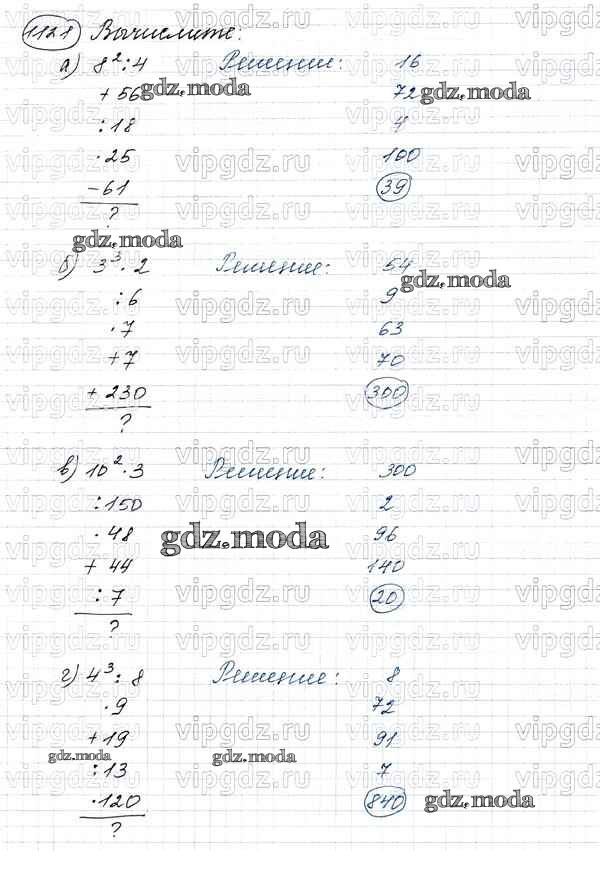 1121 Вычислите:
а) 8²:4 Решение: 16
+ 56 72
:18 4
·25 100
−61 39
?
б) 3³·2 Решение: 54
:6 9
·7 63
+7 70
+230 300
?
в) 10²·3 Решение: 300
:150 2
·48 96
+ 44 140
:7 20
?
г) 4³:8 Решение: 8
·9 72
+19 91
:13 7
·120 840
?
gdz.moda
vipgdz.ru